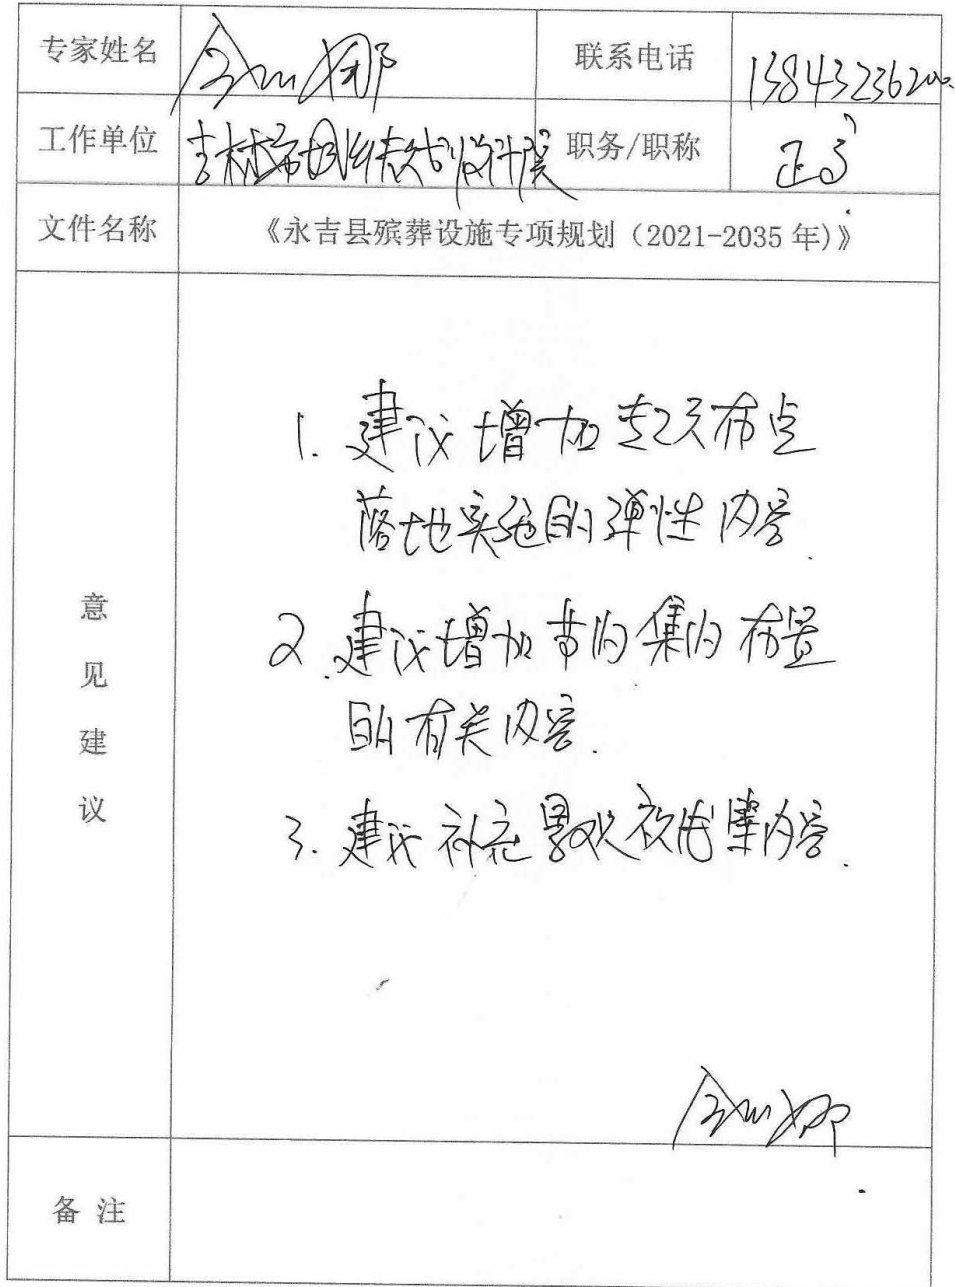 专家姓名 联系电话
工作单位 吉林市城乡规划设计院 职务/职称 正高
文件名称 《永吉县殡葬设施专项规划（2021-2035年）》
意见建议
1. 建议增加 布点
落地实施的弹性内容.
2. 建议增加节约集约布置
的有关内容.
3. 建议补充景观 内容.
备 注